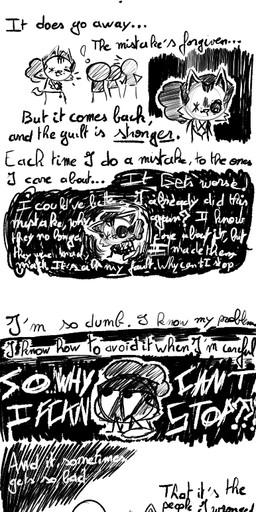 It does go away...
The mistake's forgiven...
But it comes back,
and the guilt is stronger.
Each time I do a mistake, to the ones
I care about...
It gets worse!
I could've I already did this
mistake, why again? I know
they no longer care about it, but
they were I made them
It's all my fault. Why can't I stop
I'm so dumb. I know my problem
I know how to avoid it when I'm careful
SO WHY CAN'T
I STOP??
And it sometimes
gets so bad
That it's the
people I wronged